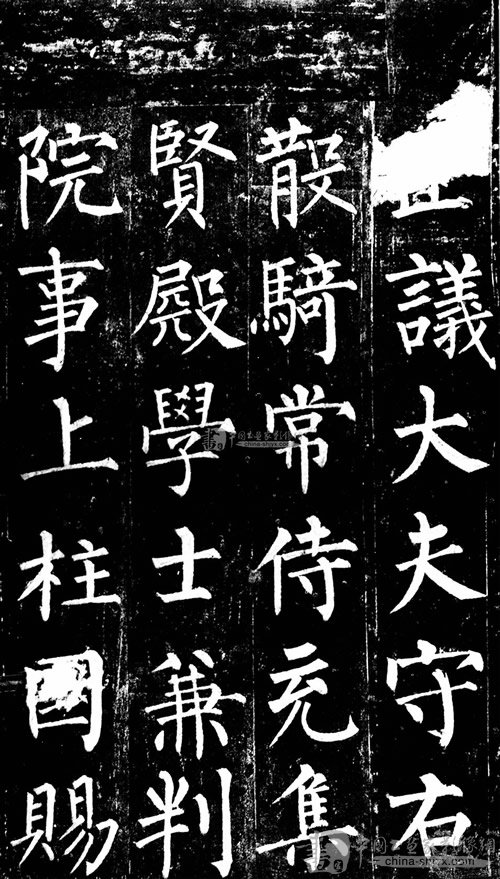 議大夫守右
散騎常侍充集
賢殿學士兼判
院事上柱國賜
china-shjyx.com
china-shjyx.com